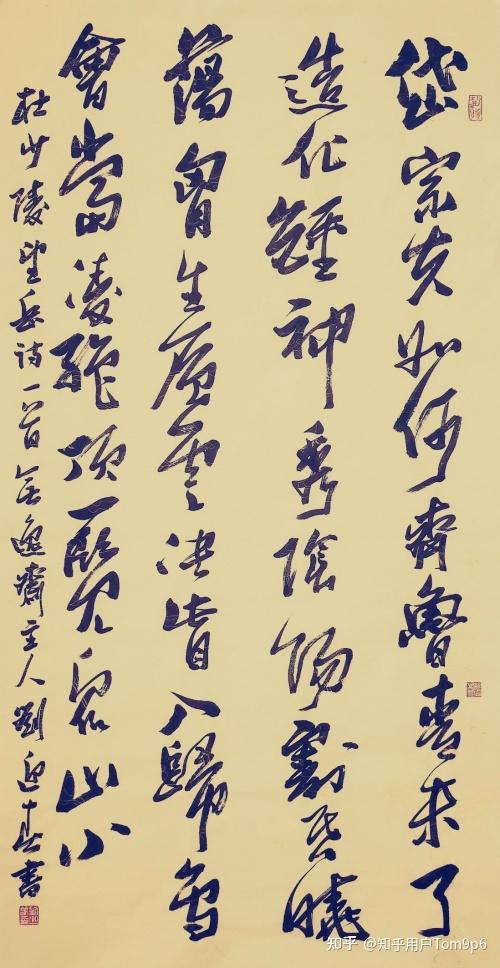 岱宗夫如何齊魯青未了
造化鍾神秀陰陽割昏曉
蕩胷生層雲決眥入歸鳥
會當凌絕頂一覽衆山小
杜少陵望岳詩一首無逸齋主人劉迎春書
知乎 @知乎用户Tom9p6